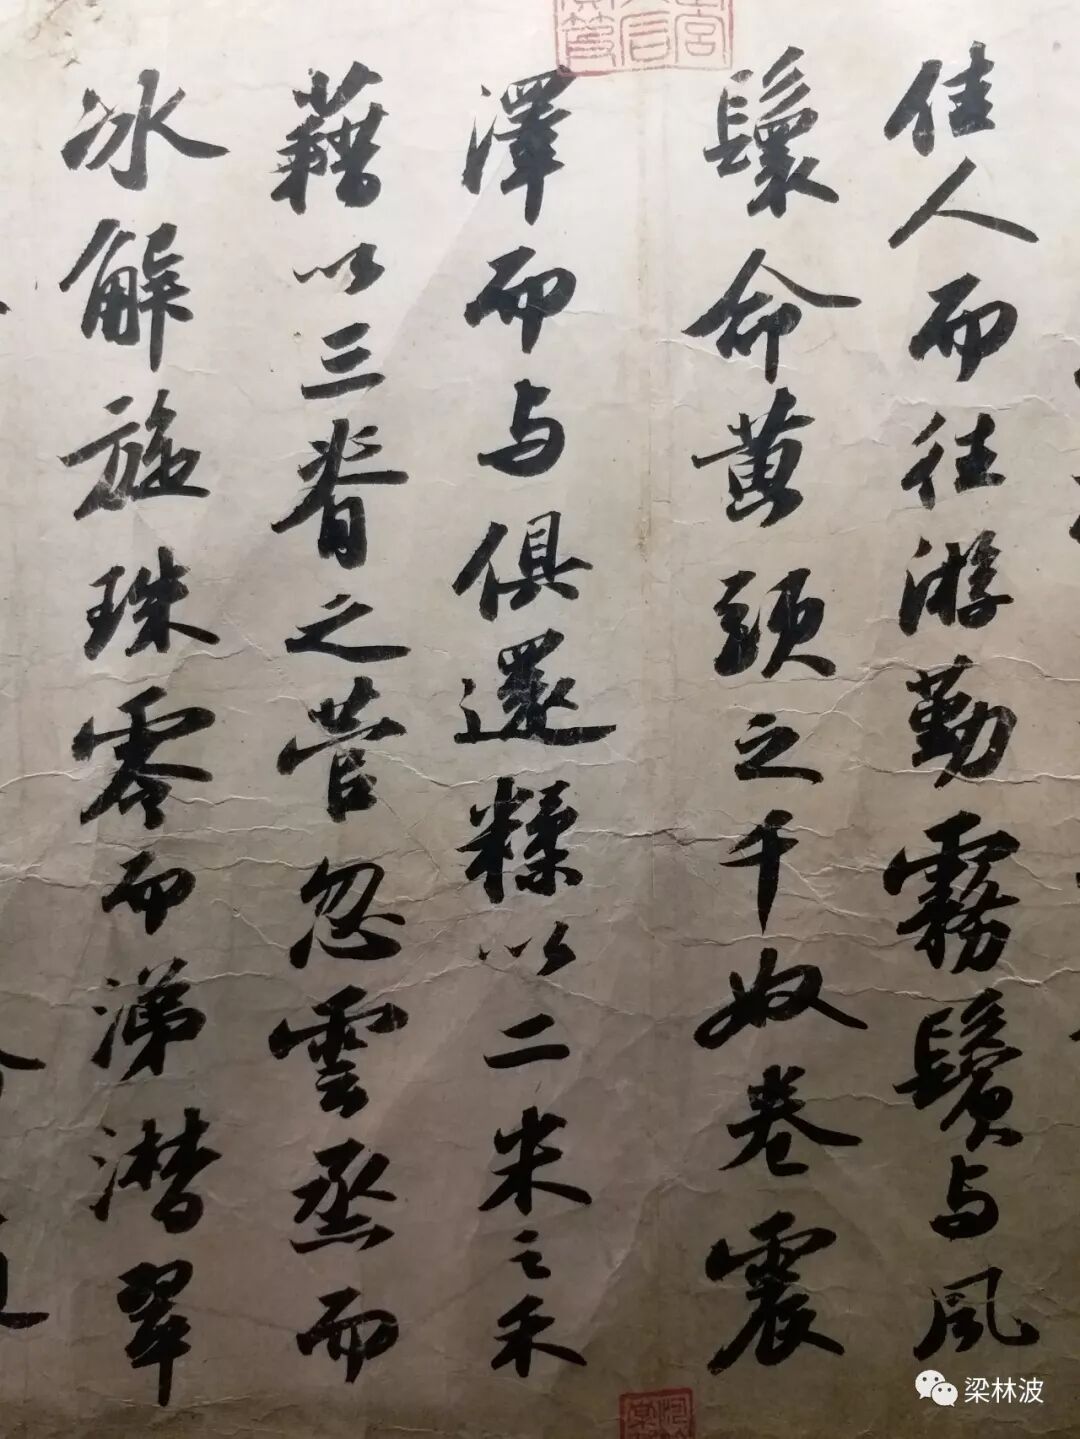 佳人而往游勤霧鬢与風
鬟命黄頭之千奴卷震
澤而与俱還糅以二米之禾
藉以三脊之菅忽雲烝而
冰解旋珠零而涕潸翠
梁林波